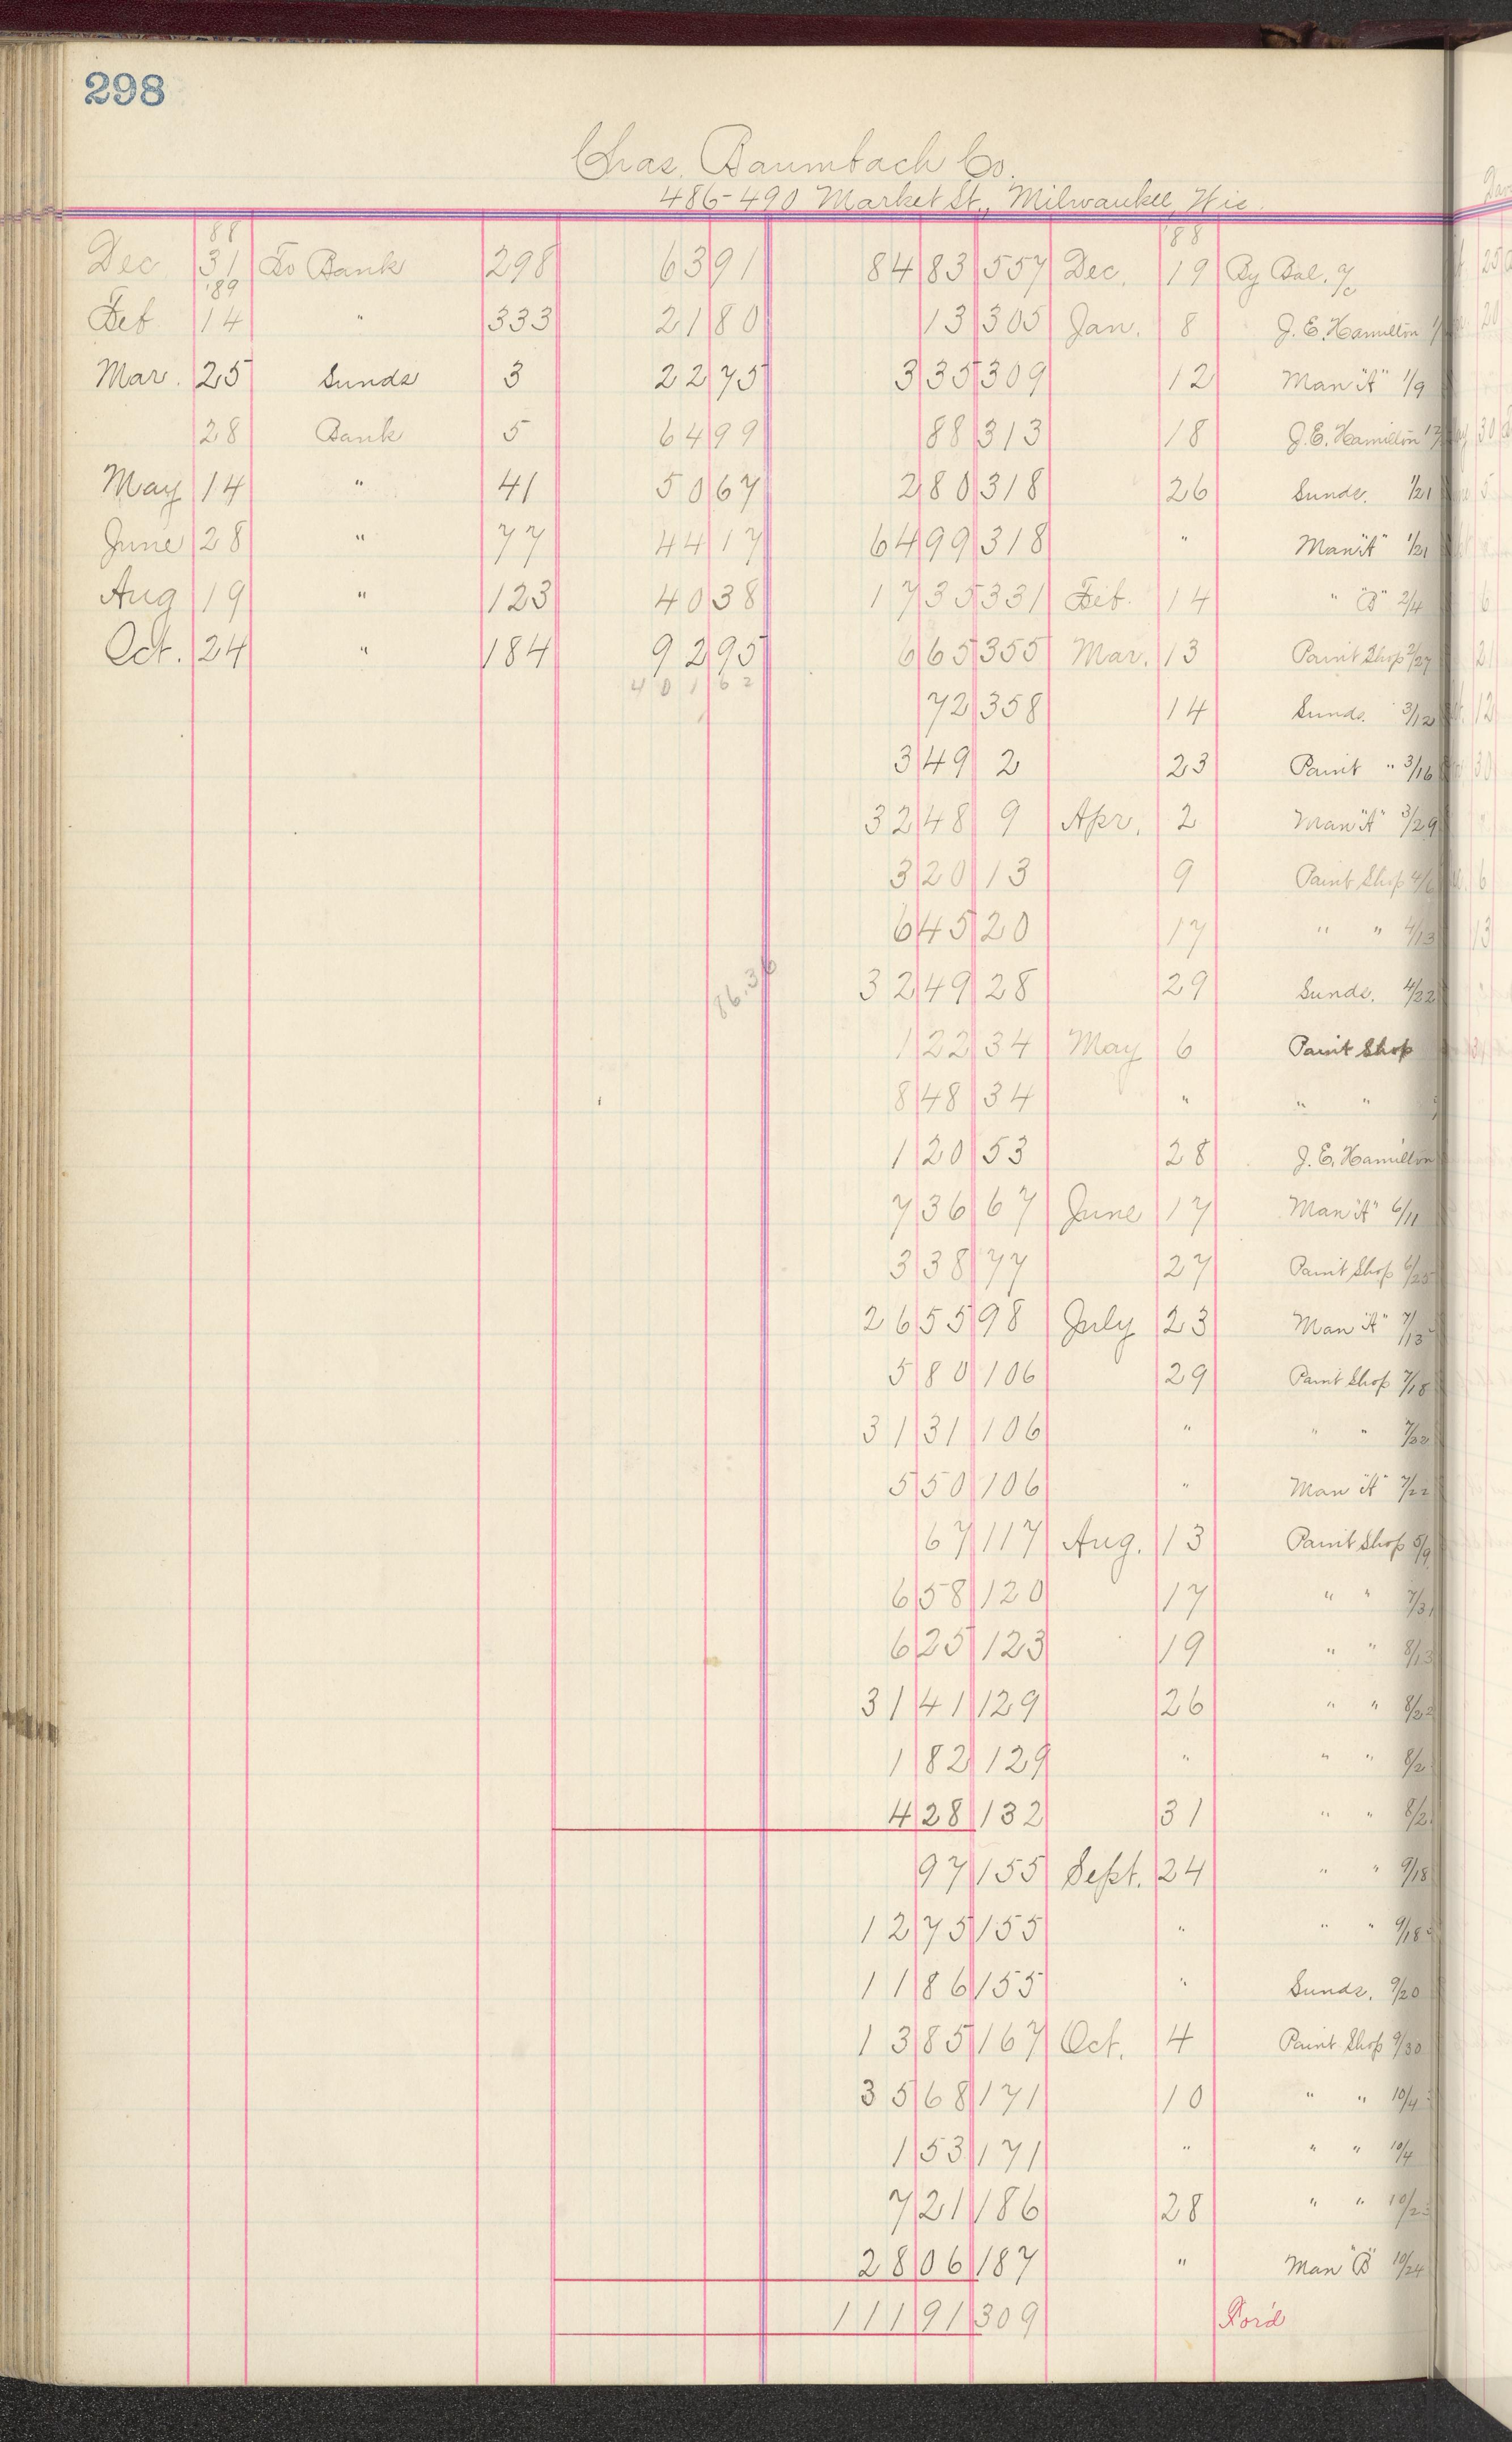 298
Chas. Baumbach Co.
486-490 Market St., Milwaukee, Wis.
88 '88
Dec 31 To Bank 298 63 91 84 83 557 Dec. 19 By Bal. %
'89
Feb 14 " 333 21 80 13 305 Jan. 8 J. E. Hamilton
Mar. 25 Sunds 3 22 75 3 35 309 12 Man "A" 1/9
28 Bank 5 64 99 88 313 18 J. E. Hamilton
May 14 " 41 50 67 2 80 318 26 Sunds. 1/21
June 28 " 77 44 17 64 99 318 " Man "A" 1/21
Aug 19 " 123 40 38 17 35 331 Feb. 14 " "B" 2/4
Oct. 24 " 184 92 95 6 65 355 Mar. 13 Paint Shop 2/27
401 62
72 358 14 Sunds. 3/12
3 49 2 23 Paint " 3/16
32 48 9 Apr. 2 Man "A" 3/29
3 20 13 9 Paint Shop 4/6
6 45 20 17 " " 4/13
86.36
32 49 28 29 Sunds. 4/22
1 22 34 May 6 Paint Shop
8 48 34 " " "
1 20 53 28 J. E. Hamilton
7 36 67 June 17 Man "A" 6/11
3 38 77 27 Paint Shop 6/25
26 55 98 July 23 Man "A" 7/13
5 80 106 29 Paint Shop 7/18
31 31 106 " " " 7/22
5 50 106 " Man "A" 7/22
67 117 Aug. 13 Paint Shop 5/9
6 58 120 17 " " 7/31
6 25 123 19 " " 8/13
31 41 129 26 " " 8/22
1 82 129 " " "
4 28 132 31 " "
97 155 Sept. 24 " " 9/18
12 75 155 " " " 9/18
11 86 155 " Sunds. 9/20
13 85 167 Oct. 4 Paint Shop 9/30
35 68 171 10 " " 10/4
1 53 171 " " " 10/4
7 21 186 28 " "
28 06 187 " Man "B" 10/24
111 91 309 For'd